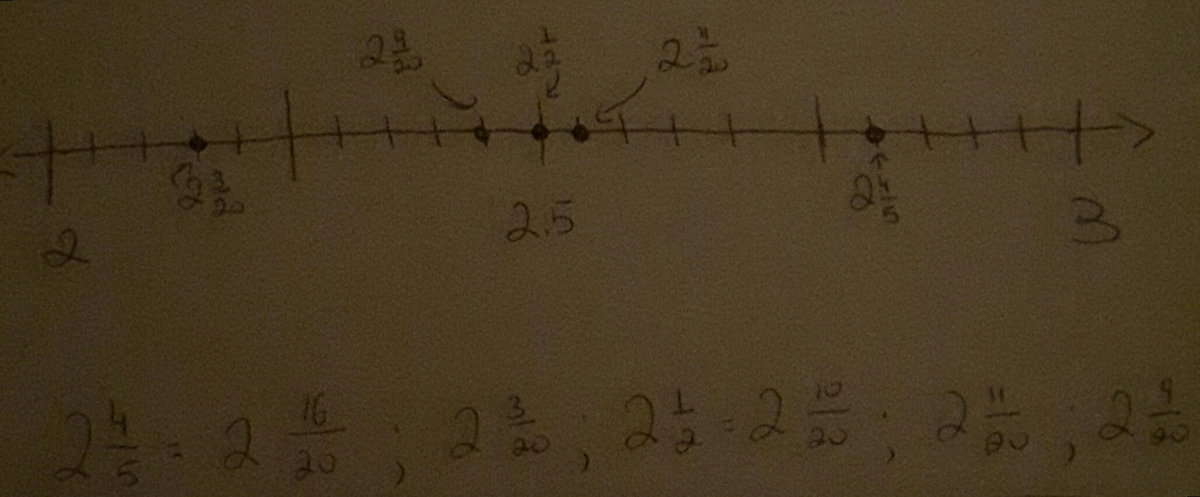 2 9/20 2 1/2 2 11/20
2 3/20 2 4/5
2 2.5 3
2 4/5 = 2 16/20 ; 2 3/20 ; 2 1/2 = 2 10/20 ; 2 11/20 ; 2 9/20